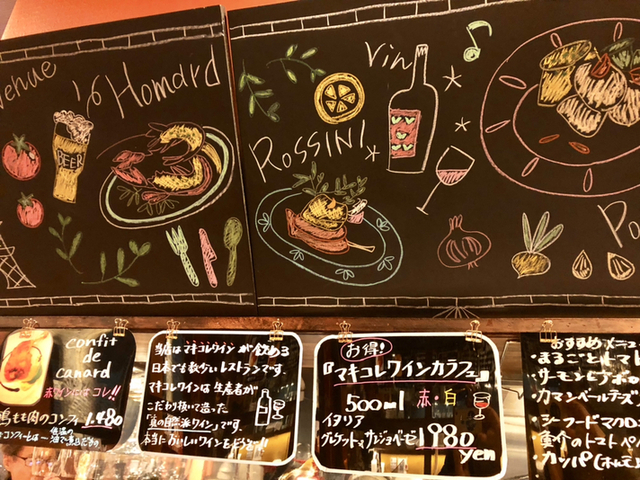 venue
Homard
BEER
Vin
ROSSINI
Po
confit
de
canard
赤ワインにはコレ!!
鴨もも肉のコンフィ 1,480
当店はマキコレワインが飲める
日本でも数少ないレストランです。
マキコレワインは生産者が
こだわり抜いて造った
「真の自然派ワイン」です。
本当においしいワインをどうぞ!!
お得!
『マキコレワインカラフェ』
500ml 赤・白
イタリア
1980
yen
おすすめメニュー
・まるごとトマト
・サーモンとアボ
・カマンベールチーズ
・シーフードマカロニ
・トマトペ
・カッパ